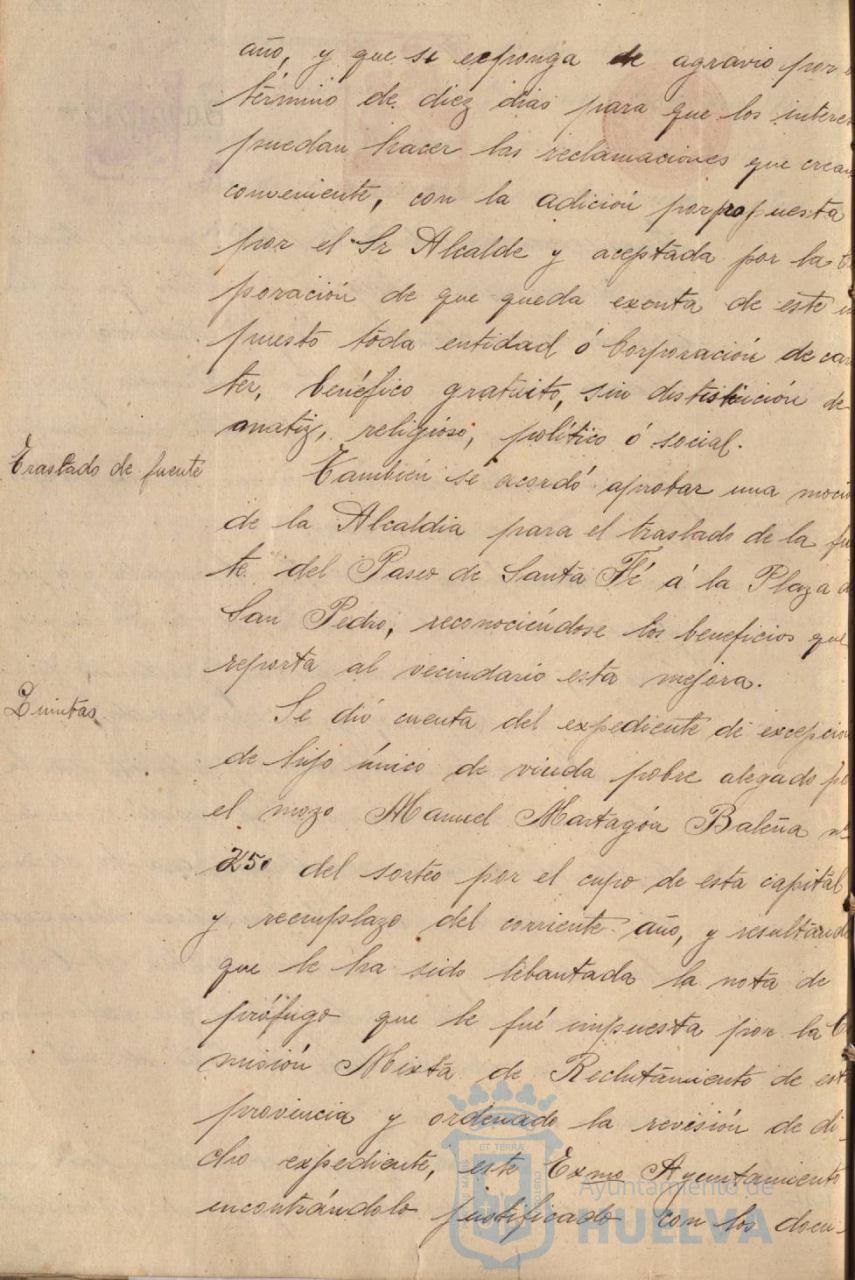 año, y que se exponga de agravio por
término de diez dias para que los interes
puedan hacer las reclamaciones que crean
conveniente, con la adición porpropuesta
por el Sr Alcalde y aceptada por la C
poración de que queda exenta de este
puesto toda entidad ó Corporación de car
ter, benéfico gratuito, sin distinción de
matiz, religioso, político ó social.
Traslado de fuente
También se acordó aprobar una moció
de la Alcaldia para el traslado de la fu
te del Paseo de Santa Fé á la Plaza d
San Pedro, reconociéndose los beneficios que
reporta al vecindario esta mejora.
Quintas
Se dió cuenta del expediente de excepció
de hijo único de viuda pobre alegado po
el mozo Manuel Martagón n.º
250 del sorteo por el cupo de esta capital
y reemplazo del corriente año, y resultando
que le ha sido lebantada la nota de
prófugo que le fué impuesta por la C
misión Mixta de Reclutamiento de esta
provincia y ordenado la revisión de di-
cho expediente, este Exmo Ayuntamiento
encontrándolo justificado con los docu-
ET TERRÆ
Ayuntamiento de
HUELVA